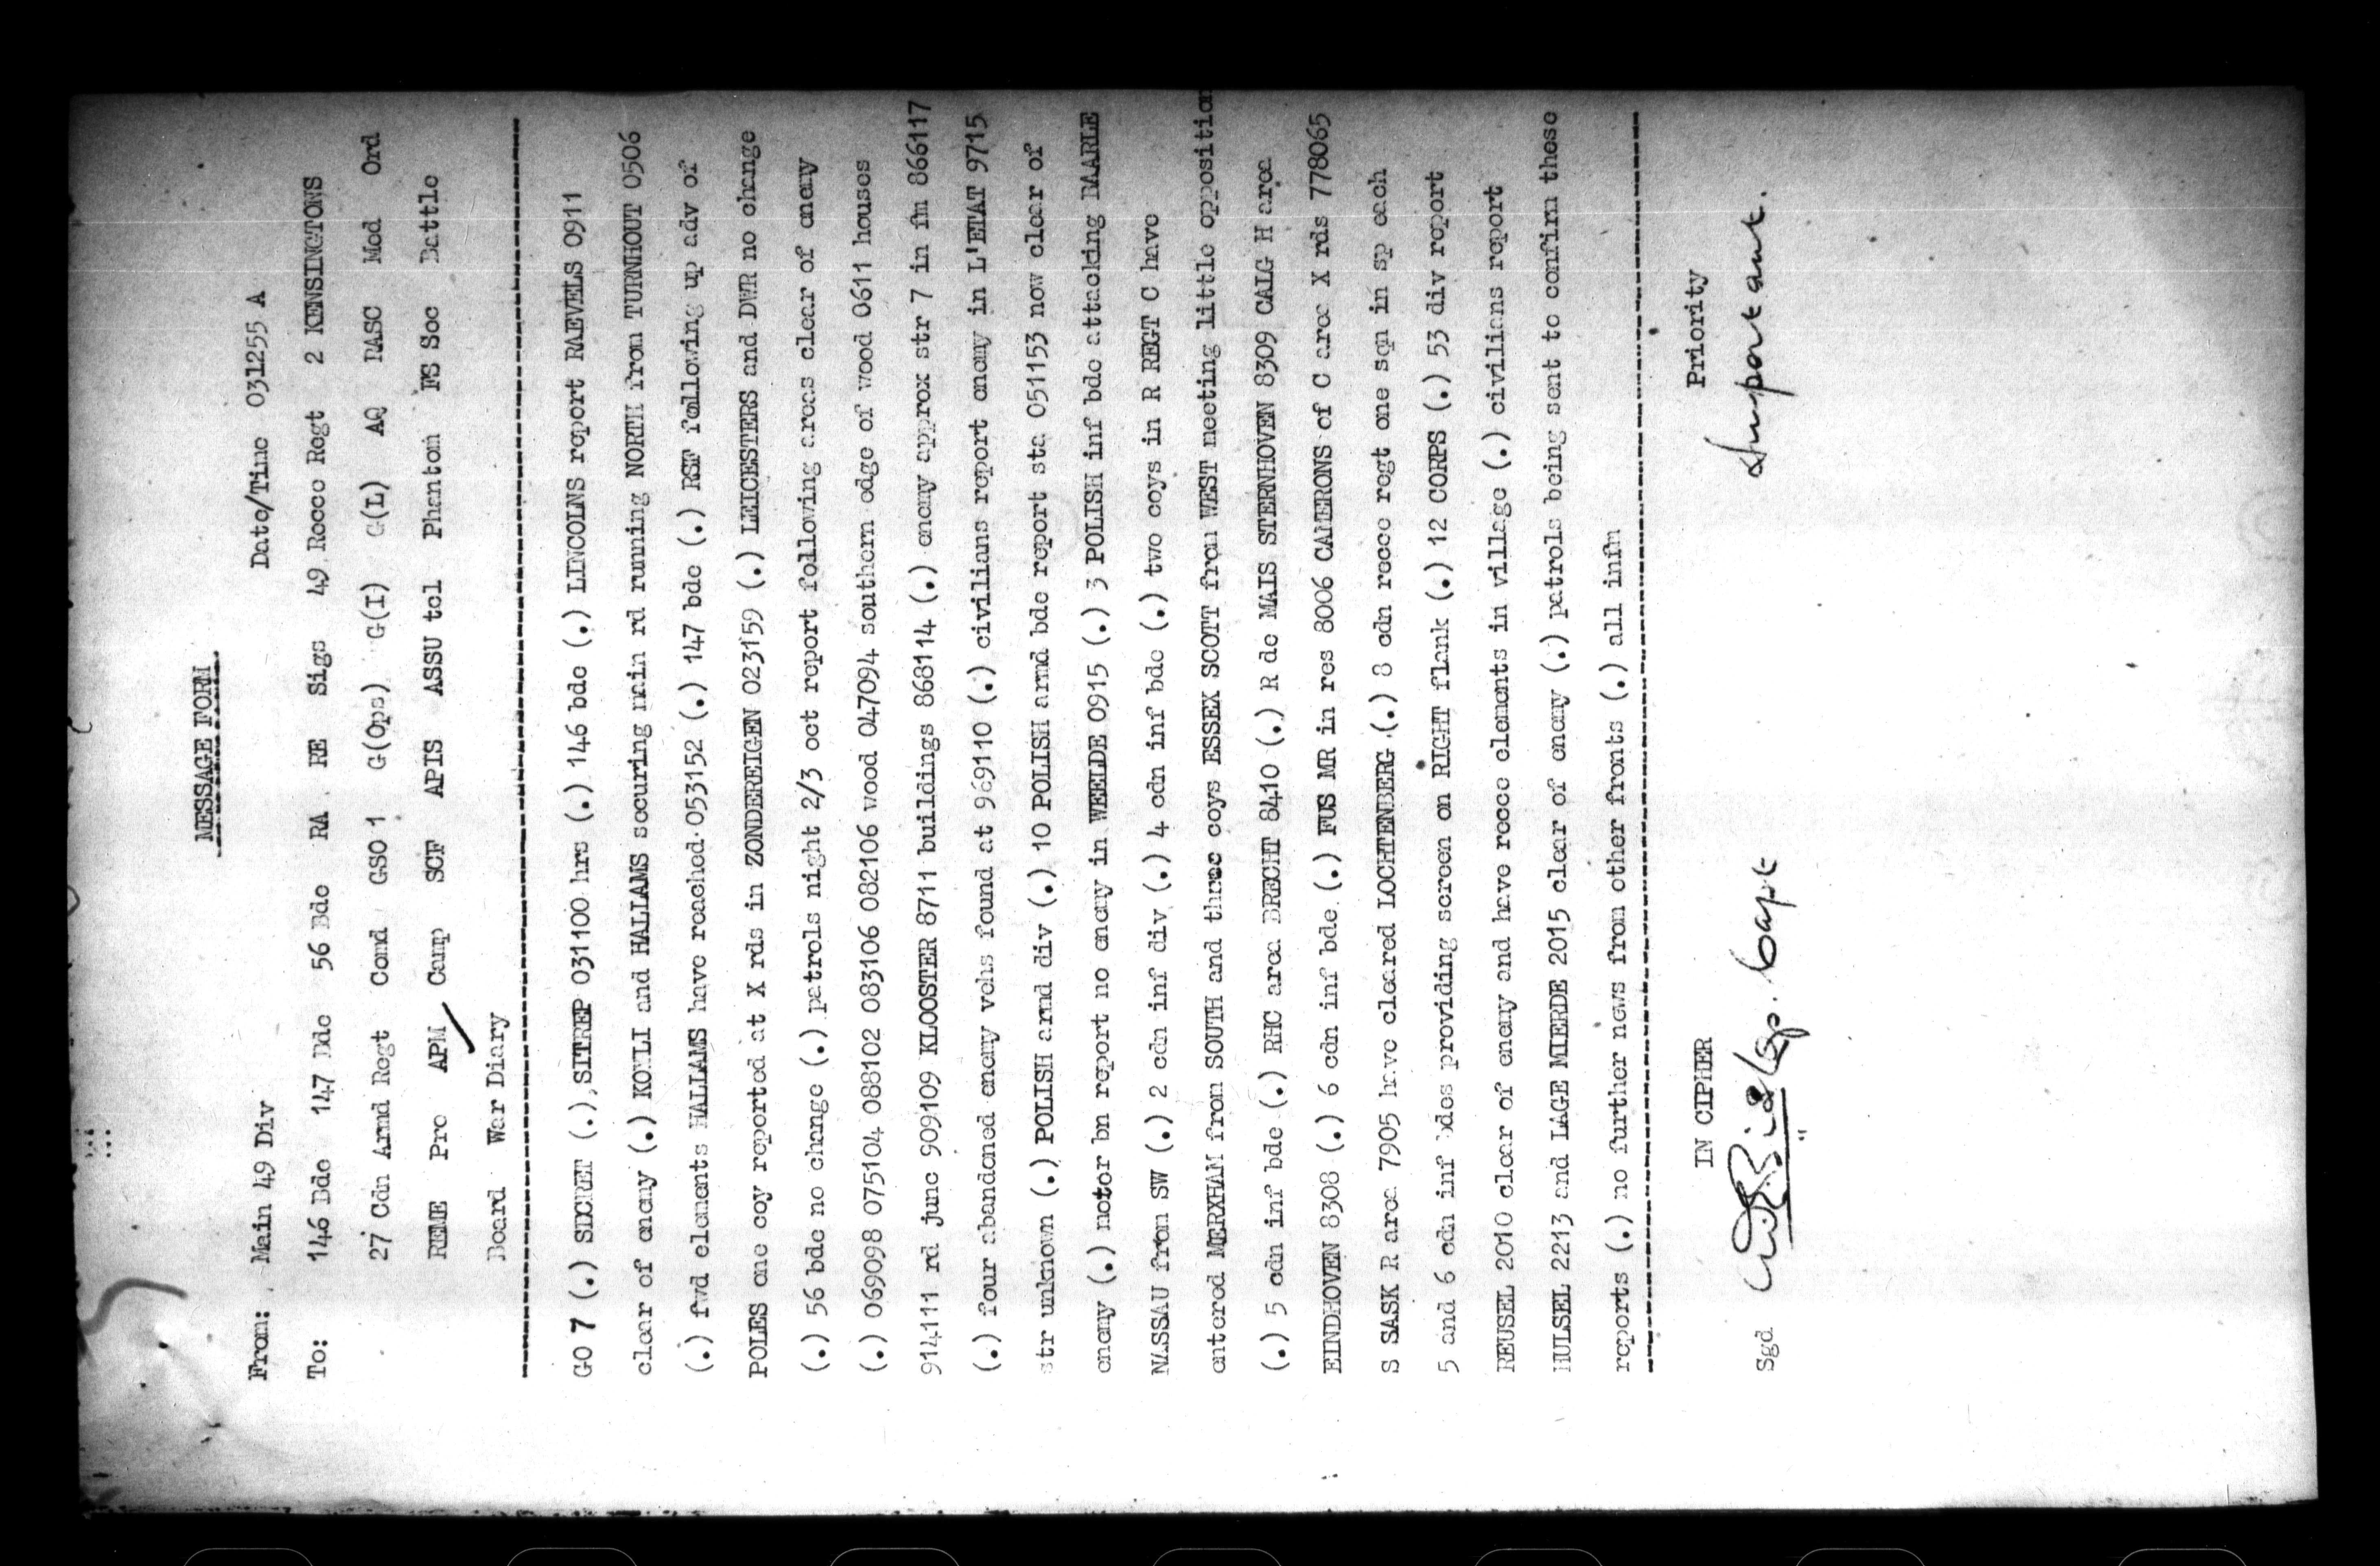 MESSAGE FORM
From: Main 49 Div Date/Time 031255 A
To: 146 Bde 147 Bde 56 Bde RA RE Sigs 49 Recce Regt 2 KENSINGTONS
27 Cdn Armd Regt Comd GSO 1 G(Ops) G(I) G(L) AQ RASC Med Ord
REME Pro APM Camp SCF APIS ASSU tel Phantom FS Sec Battle
Board War Diary
GO 7 (.) SECRET (.) SITREP 031100 hrs (.) 146 bde (.) LINCOLNS report RAEVELS 0911
clear of enemy (.) KOYLI and HALLAMS securing main rd running NORTH from TURNHOUT 0506
(.) fwd elements HALLAMS have reached 053152 (.) 147 bde (.) RSF following up adv of
POLES one coy reported at X rds in ZONDEREIGEN 023159 (.) LEICESTERS and DWR no change
(.) 56 bde no change (.) patrols night 2/3 oct report following areas clear of enemy
(.) 069098 075104 088102 083106 082106 wood 047094 southern edge of wood 0611 houses
914111 rd junc 909109 KLOOSTER 8711 buildings 868114 (.) enemy approx str 7 in fm 866117
(.) four abandoned enemy vehs found at 969110 (.) civilians report enemy in L'ETAT 9715
str unknown (.) POLISH armd div (.) 10 POLISH armd bde report sta 051153 now clear of
enemy (.) motor bn report no enemy in WEELDE 0915 (.) 3 POLISH inf bde attacking BAARLE
NASSAU from SW (.) 2 cdn inf div (.) 4 cdn inf bde (.) two coys in R REGT C have
entered MERXHAM from SOUTH and three coys ESSEX SCOTT from WEST meeting little opposition
(.) 5 cdn inf bde (.) RHC area BRECHT 8410 (.) R de MAIS STERNHOVEN 8309 CALG H area
EINDHOVEN 8308 (.) 6 cdn inf bde (.) FUS MR in res 8006 CAMERONS of C area X rds 778065
S SASK R area 7905 have cleared LOCHTENBERG (.) 8 cdn recce regt one sqn in sp each
5 and 6 cdn inf bdes providing screen on RIGHT flank (.) 12 CORPS (.) 53 div report
REUSEL 2010 clear of enemy and have recce elements in village (.) civilians report
HULSEL 2213 and LAGE MIERDE 2015 clear of enemy (.) patrols being sent to confirm these
reports (.) no further news from other fronts (.) all infm
IN CIPHER Priority
Sgd Capt Important.